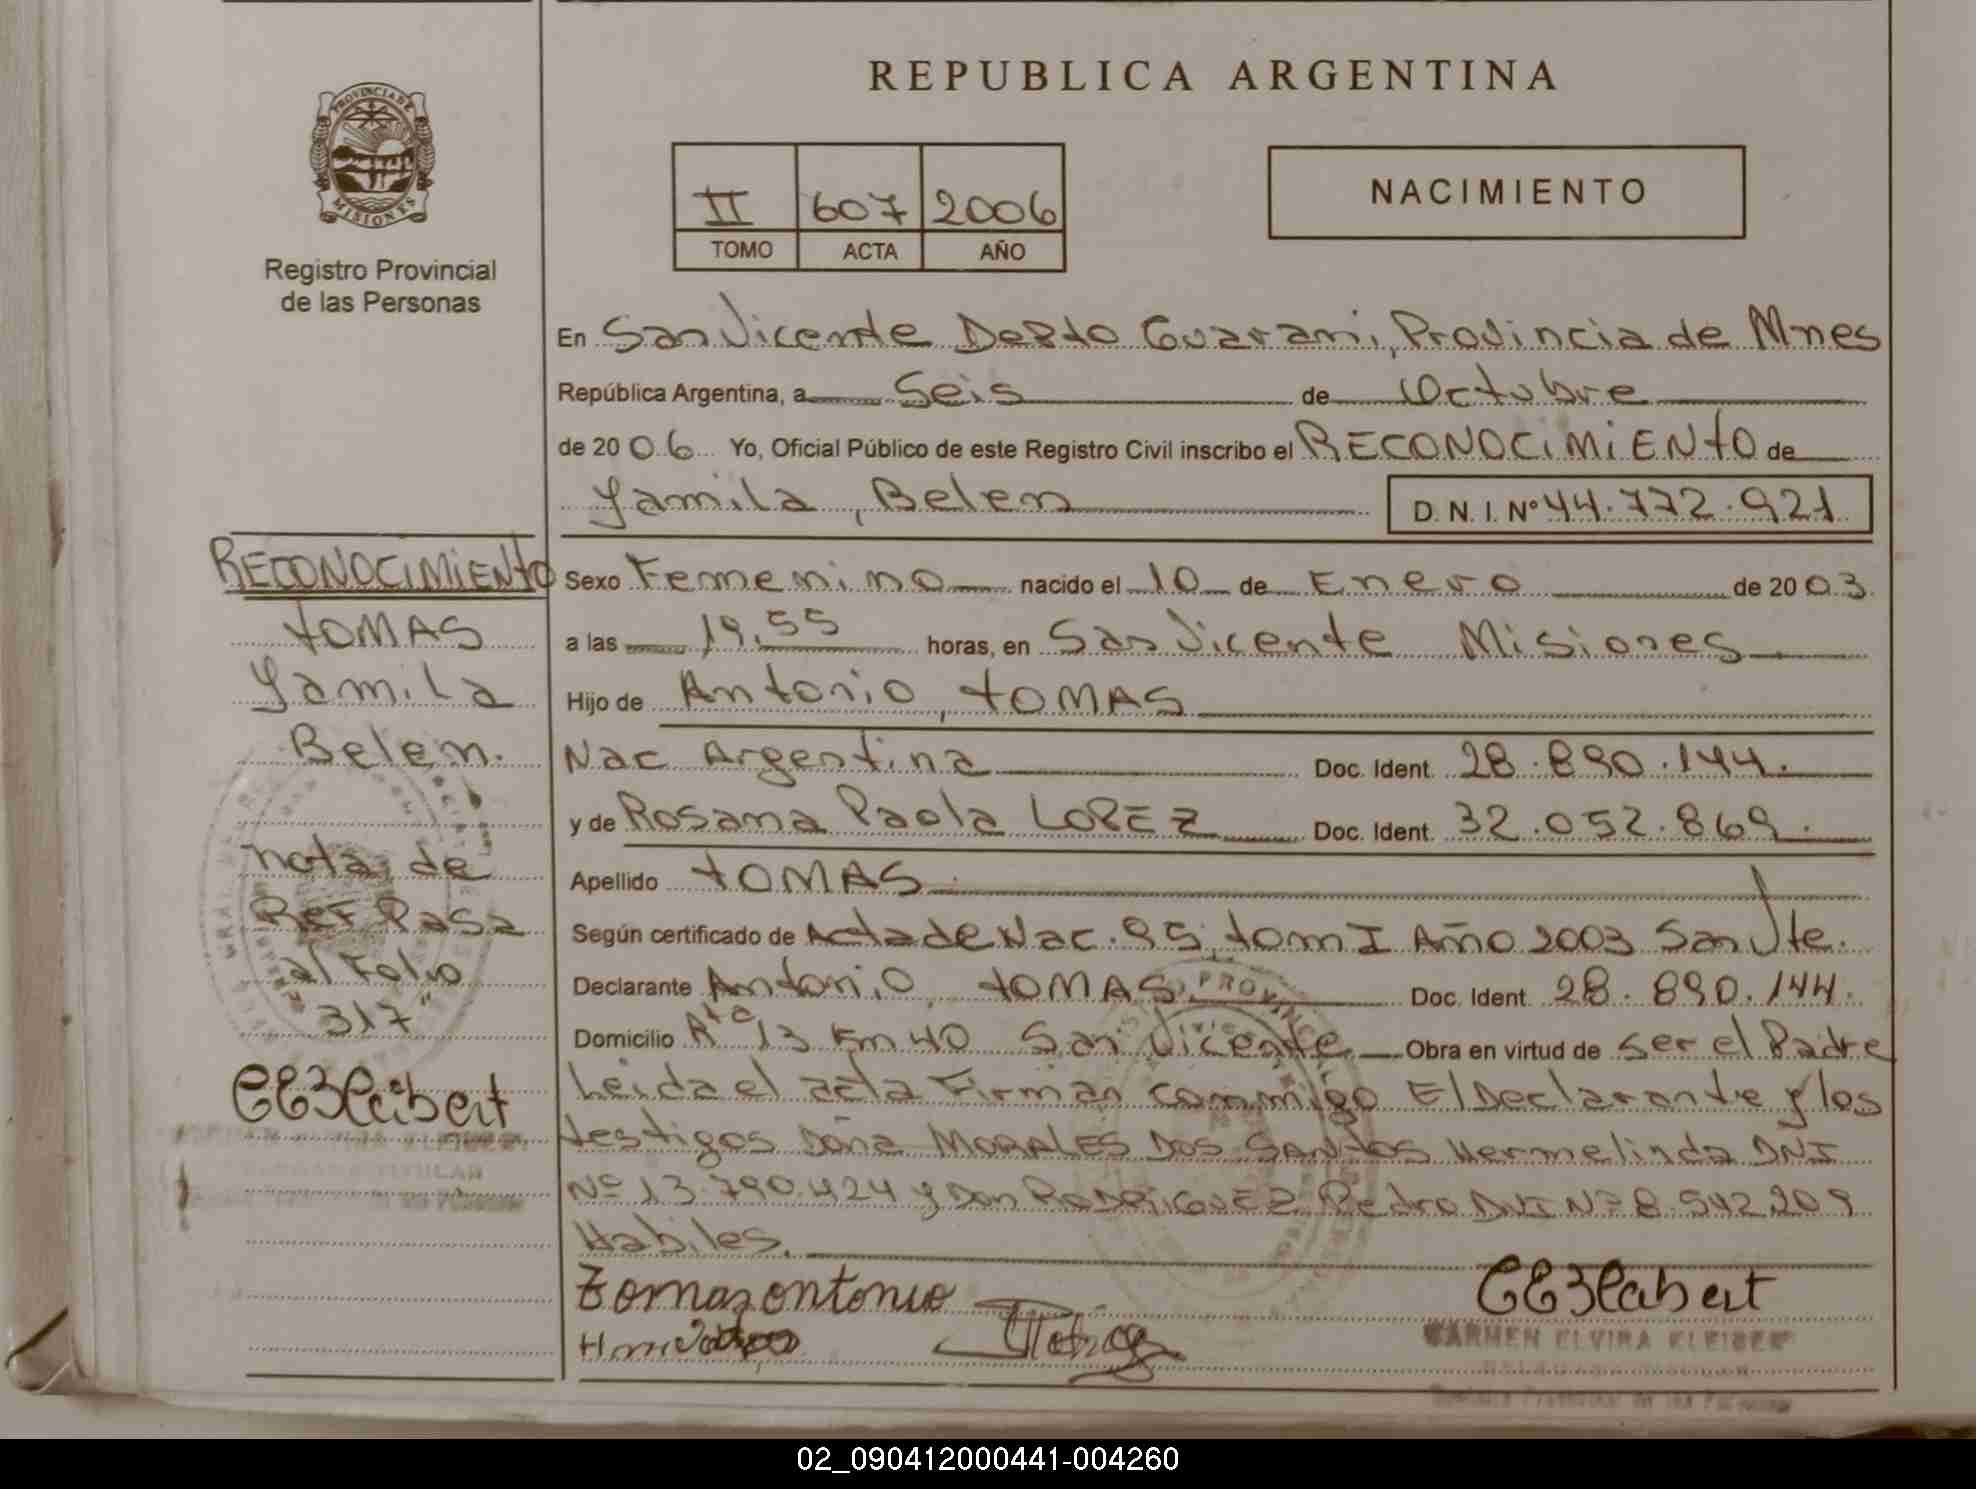 REPUBLICA ARGENTINA
PROVINCIA DE
MISIONES
Registro Provincial
de las Personas
II 607 2006
TOMO ACTA AÑO
NACIMIENTO
En San Vicente Depto Guarani, Provincia de Mnes
República Argentina, a Seis de Octubre
de 2006 Yo, Oficial Público de este Registro Civil inscribo el RECONOCIMIENTO de
Yamila, Belen D.N.I. Nº 44.772.921
RECONOCIMIENTO
TOMAS
Yamila
Belen.
nota de
Ref Pasa
al Folio
"317"
Sexo Femenino nacido el 10 de Enero de 2003
a las 19,55 horas, en San Vicente Misiones
Hijo de Antonio, TOMAS
Nac Argentina Doc. Ident. 28.890.144.
y de Rosana Paola LOPEZ Doc. Ident. 32.052.869.
Apellido TOMAS
Según certificado de Acta de Nac. 95 tom I Año 2003 San Vte.
Declarante Antonio, TOMAS Doc. Ident. 28.890.144.
Domicilio Rta 13 Km 40 San Vicente Obra en virtud de ser el Padre
Leida el acta Firman conmigo El Declarante y los
testigos Doña MORALES DOS SANTOS Hermelinda DNI
Nº 13.790.424 y Don RODRIGUEZ Pedro DNI Nº 8.542.209
Habiles.
CARMEN ELVIRA KLEIBER
02_090412000441-004260